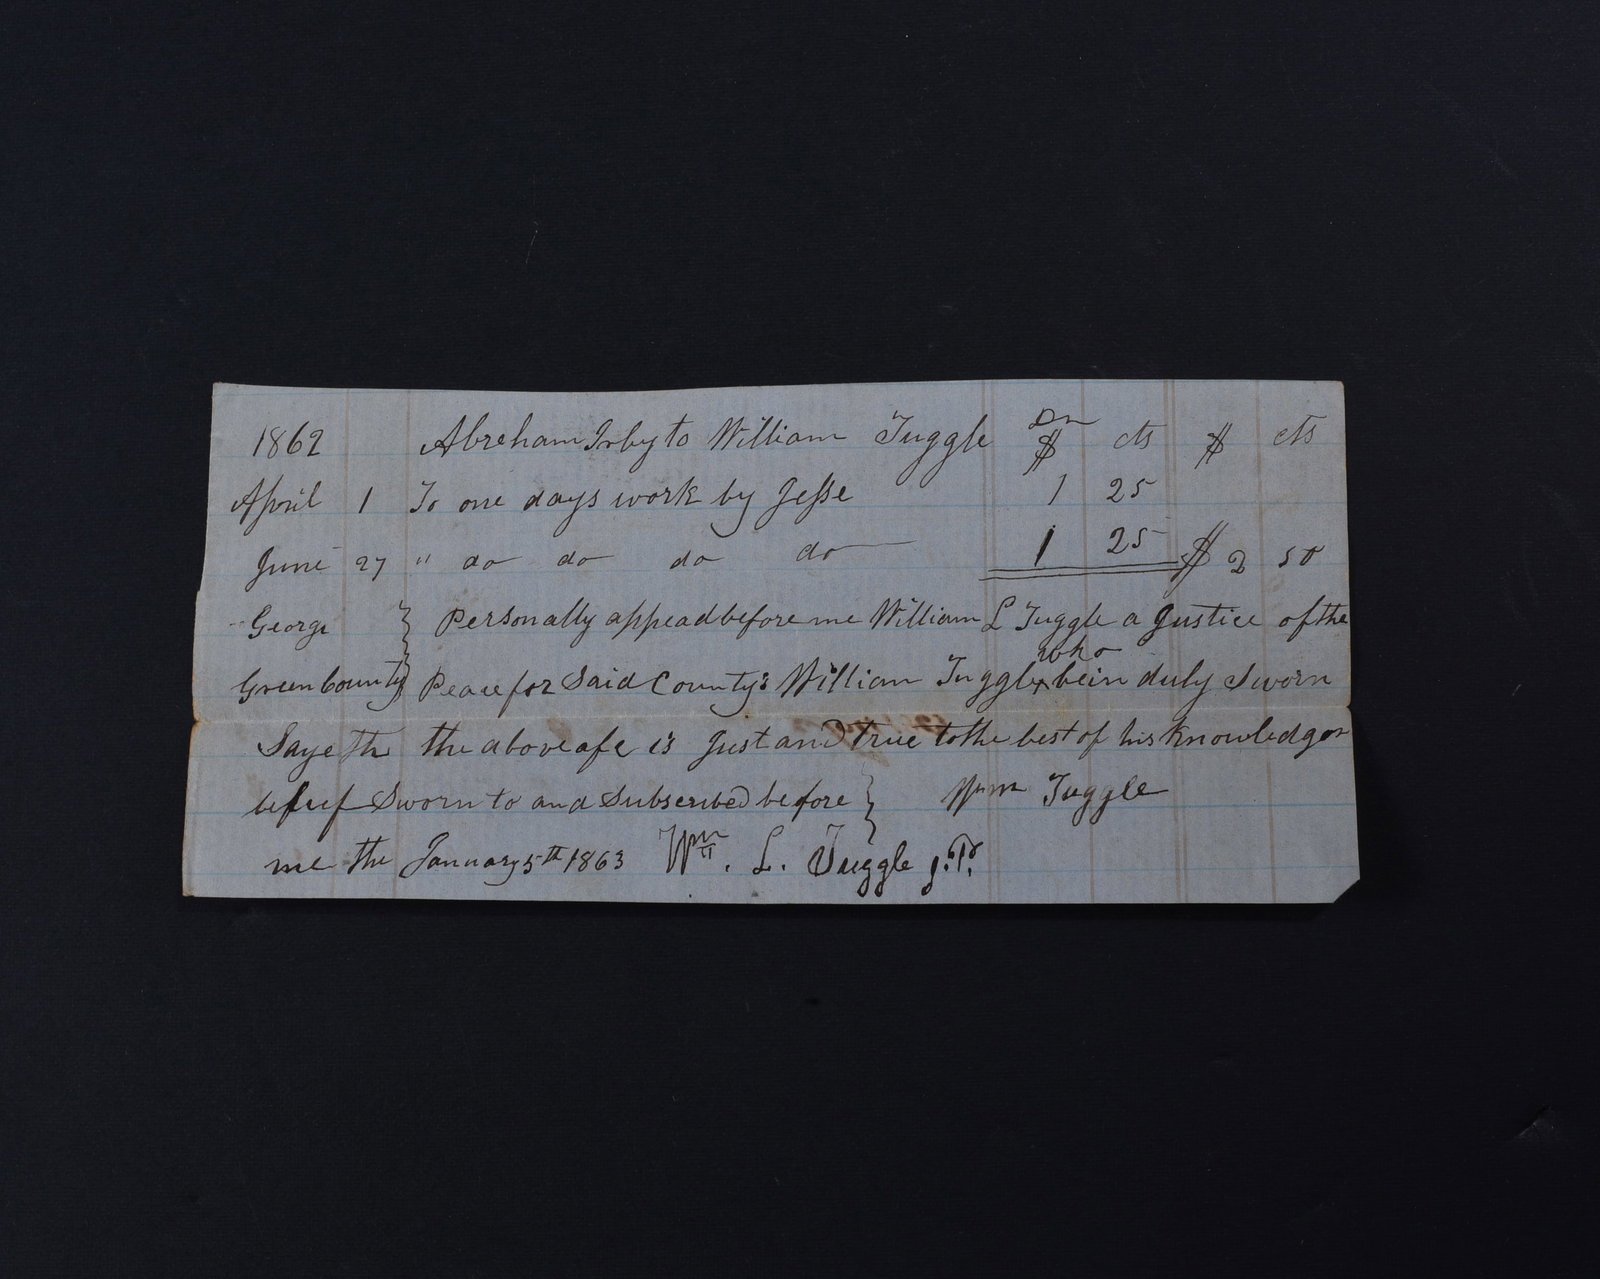 1862 Abreham Irby to William Tuggle Dr $ cts $ cts
April 1 To one days work by Jesse 1 25
June 27 " do do do do 1 25 $ 2 50
George } Personally appead before me William L Tuggle a Justice of the
Green County } Peace for Said County's William Tuggle who bein duly Sworn
Sayeth the above afc is Just and true to the best of his Knowledg or
belief Sworn to and Subscribed before } Wm Tuggle
me the January 5th 1863 Wm. L. Tuggle J.P.